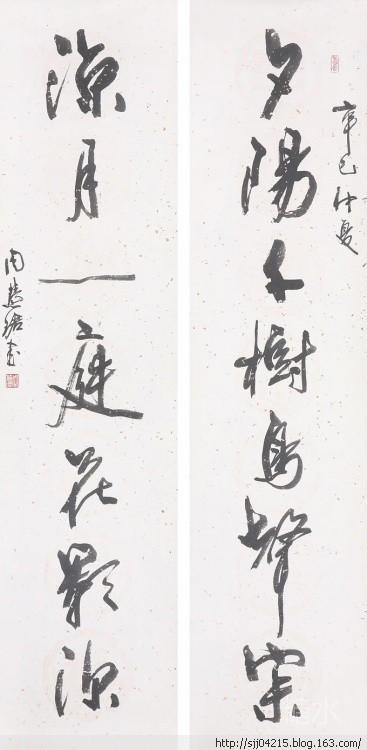 辛巳仲夏
夕陽千樹鳥聲寂
涼月一庭花影深
周慧珺書
http://sjj04215.blog.163.com/